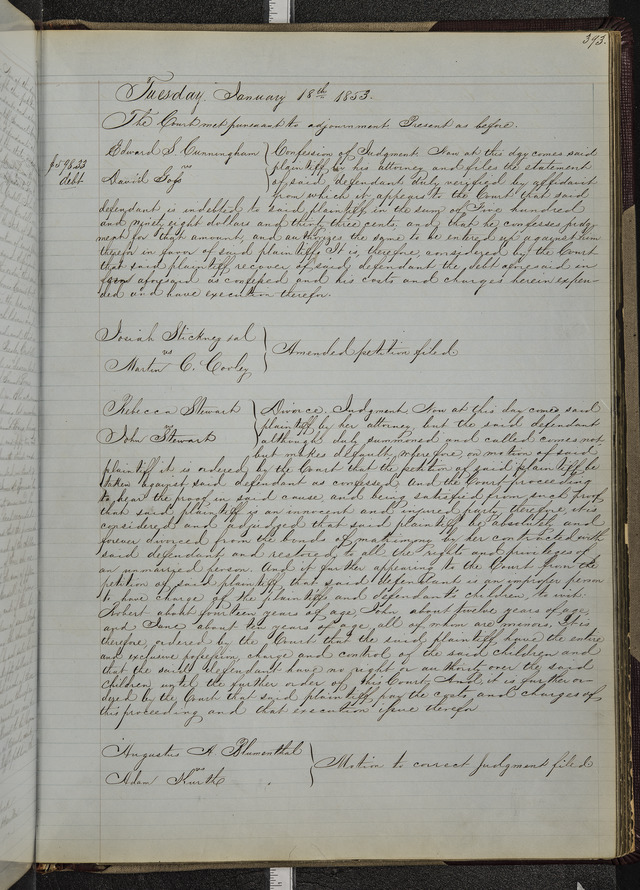 393.
Tuesday, January 18th 1853.
The Court met pursuant to adjournment. Present as before.
$598.33
debt
Edward S. Cunningham
vs
David Goss
Confession of Judgment. Now at this day comes said
plaintiff by his attorney and files the statement
of said defendant duly verified by affidavit
from which it appears to the Court that said
defendant is indebted to said plaintiff in the sum of Five hundred
and ninety eight dollars and thirty three cents, and that he confesses judg-
ment for that amount, and authorizes the same to be entered up against him
therefor in favor of said plaintiff. It is, therefore, considered by the Court
that said plaintiff recover of said defendant the debt aforesaid in
form aforesaid as confessed and his costs and charges herein expen-
ded and have execution therefor.
Josiah Stickney et al
vs
Martin C. Corley
Amended petition filed
Rebecca Stewart
John Stewart
Divorce. Judgment. Now at this day comes said
plaintiff by her attorney but the said defendant
although duly summoned and called comes not
but makes default, wherefore on motion of said
plaintiff it is ordered by the Court that the petition of said plaintiff be
taken against said defendant as confessed. And the Court proceeding
to hear the proof in said cause and being satisfied from such proof
that said plaintiff is an innocent and injured party, therefore, it is
considered and adjudged that said plaintiff be absolutely and
forever divorced from the bonds of matrimony by her contracted with
said defendant and restored to all the rights and privileges of
an unmarried person. And it further appearing to the Court from the
petition of said plaintiff, that said defendant is an improper person
to have charge of the plaintiff and defendants children, to wit:
Robert about fourteen years of age, John about twelve years of age
and Jane about ten years of age, all of whom are minors. It is
therefore ordered by the Court that the said plaintiff have the entire
and exclusive possession, charge and control of the said children and
that the said defendant have no right or authority over the said
children until the further order of this Court. And it is further or-
dered by the Court that said plaintiff pay the costs and charges of
this proceeding and that execution issue therefor
Augustus A. Blumenthal
vs
Adam Kurth
Motion to correct judgment filed